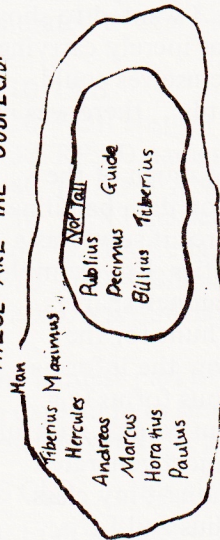 THESE ARE THE
Man
Tiberius Maximus
Hercules
Andreas
Marcus
Horatius
Paulus
NOT Tall
Publius
Decimus Guide
Billius Tiberius